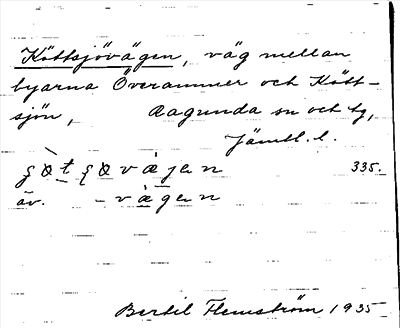 Köttsjövägen, väg mellan
byarna Överammer och Kött-
sjön, Ragunda sn och tg,
Jämtl. l.
335.
äv. -vägen
Bertil Flemström 1935